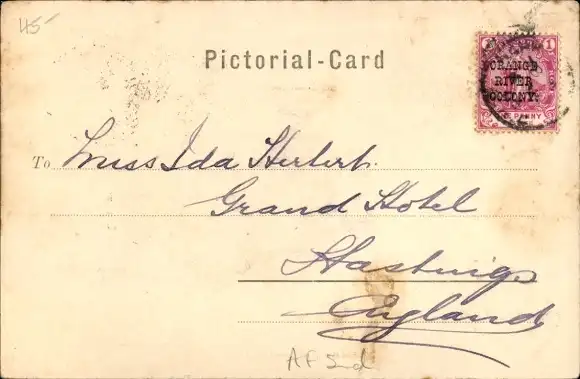 45-
Pictorial-Card
1 1
ORANGE
RIVER
COLONY.
PENNY
To Miss Ida Herbert.
Grand Hotel
Hastings
England